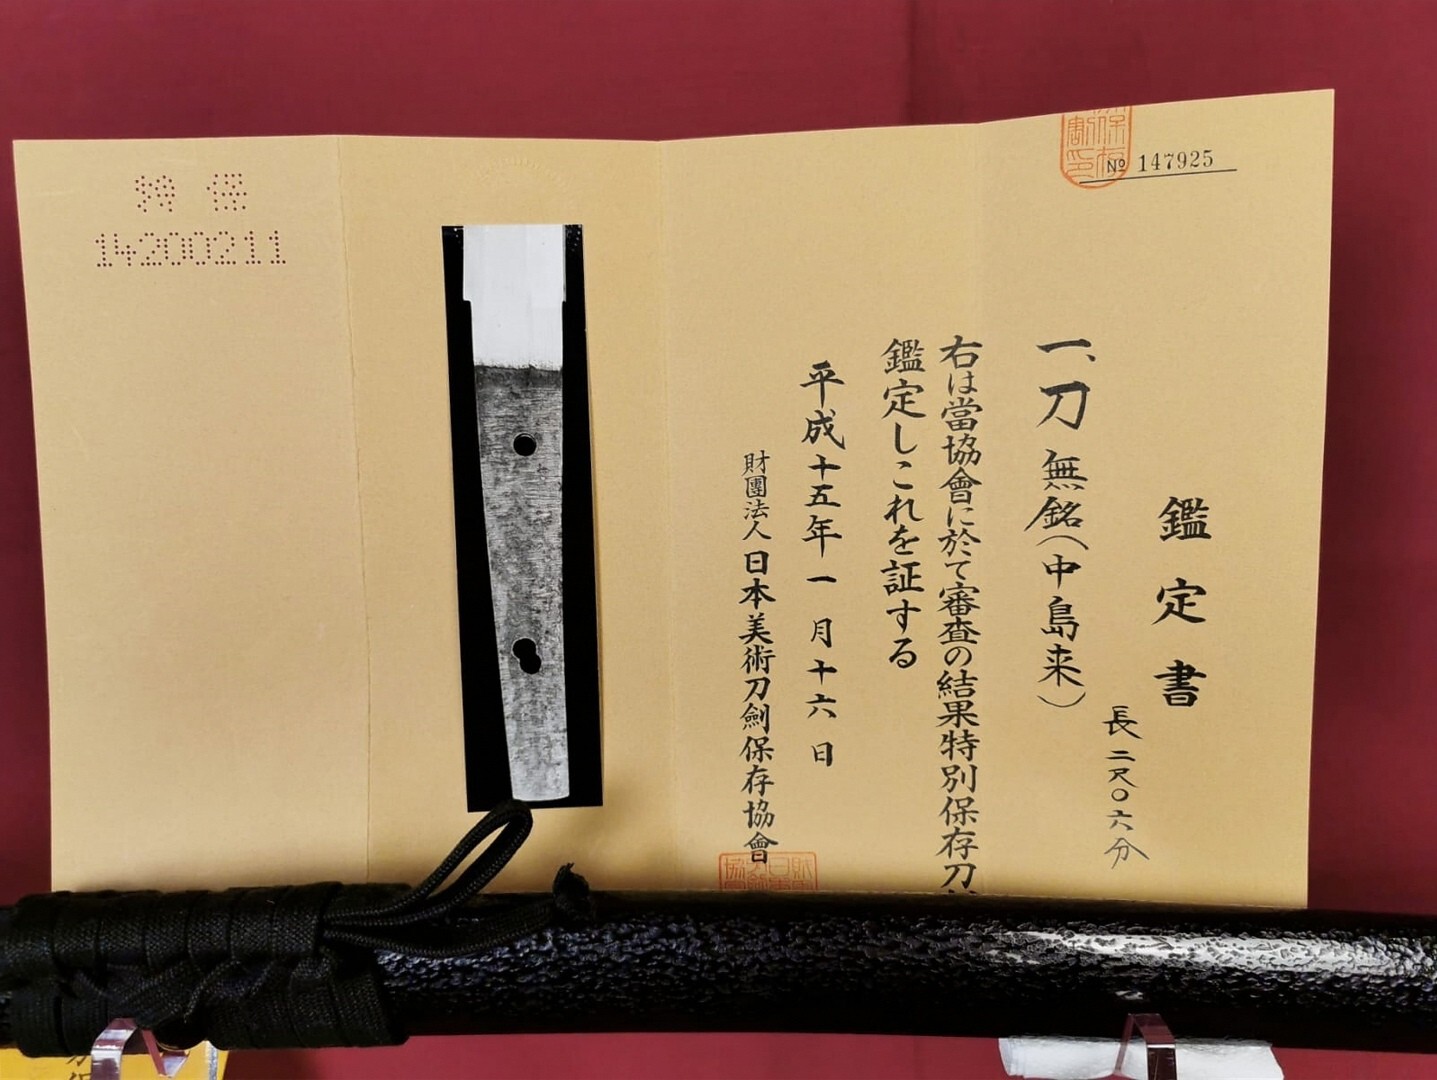 鑑定書
№ 147925
保存
割印
一、刀 無銘(中島来)
長二尺〇六分
右は當協會に於て審査の結果特別保存刀
鑑定しこれを証する
平成十五年一月十六日
財團法人 日本美術刀劍保存協會
特保
14200211